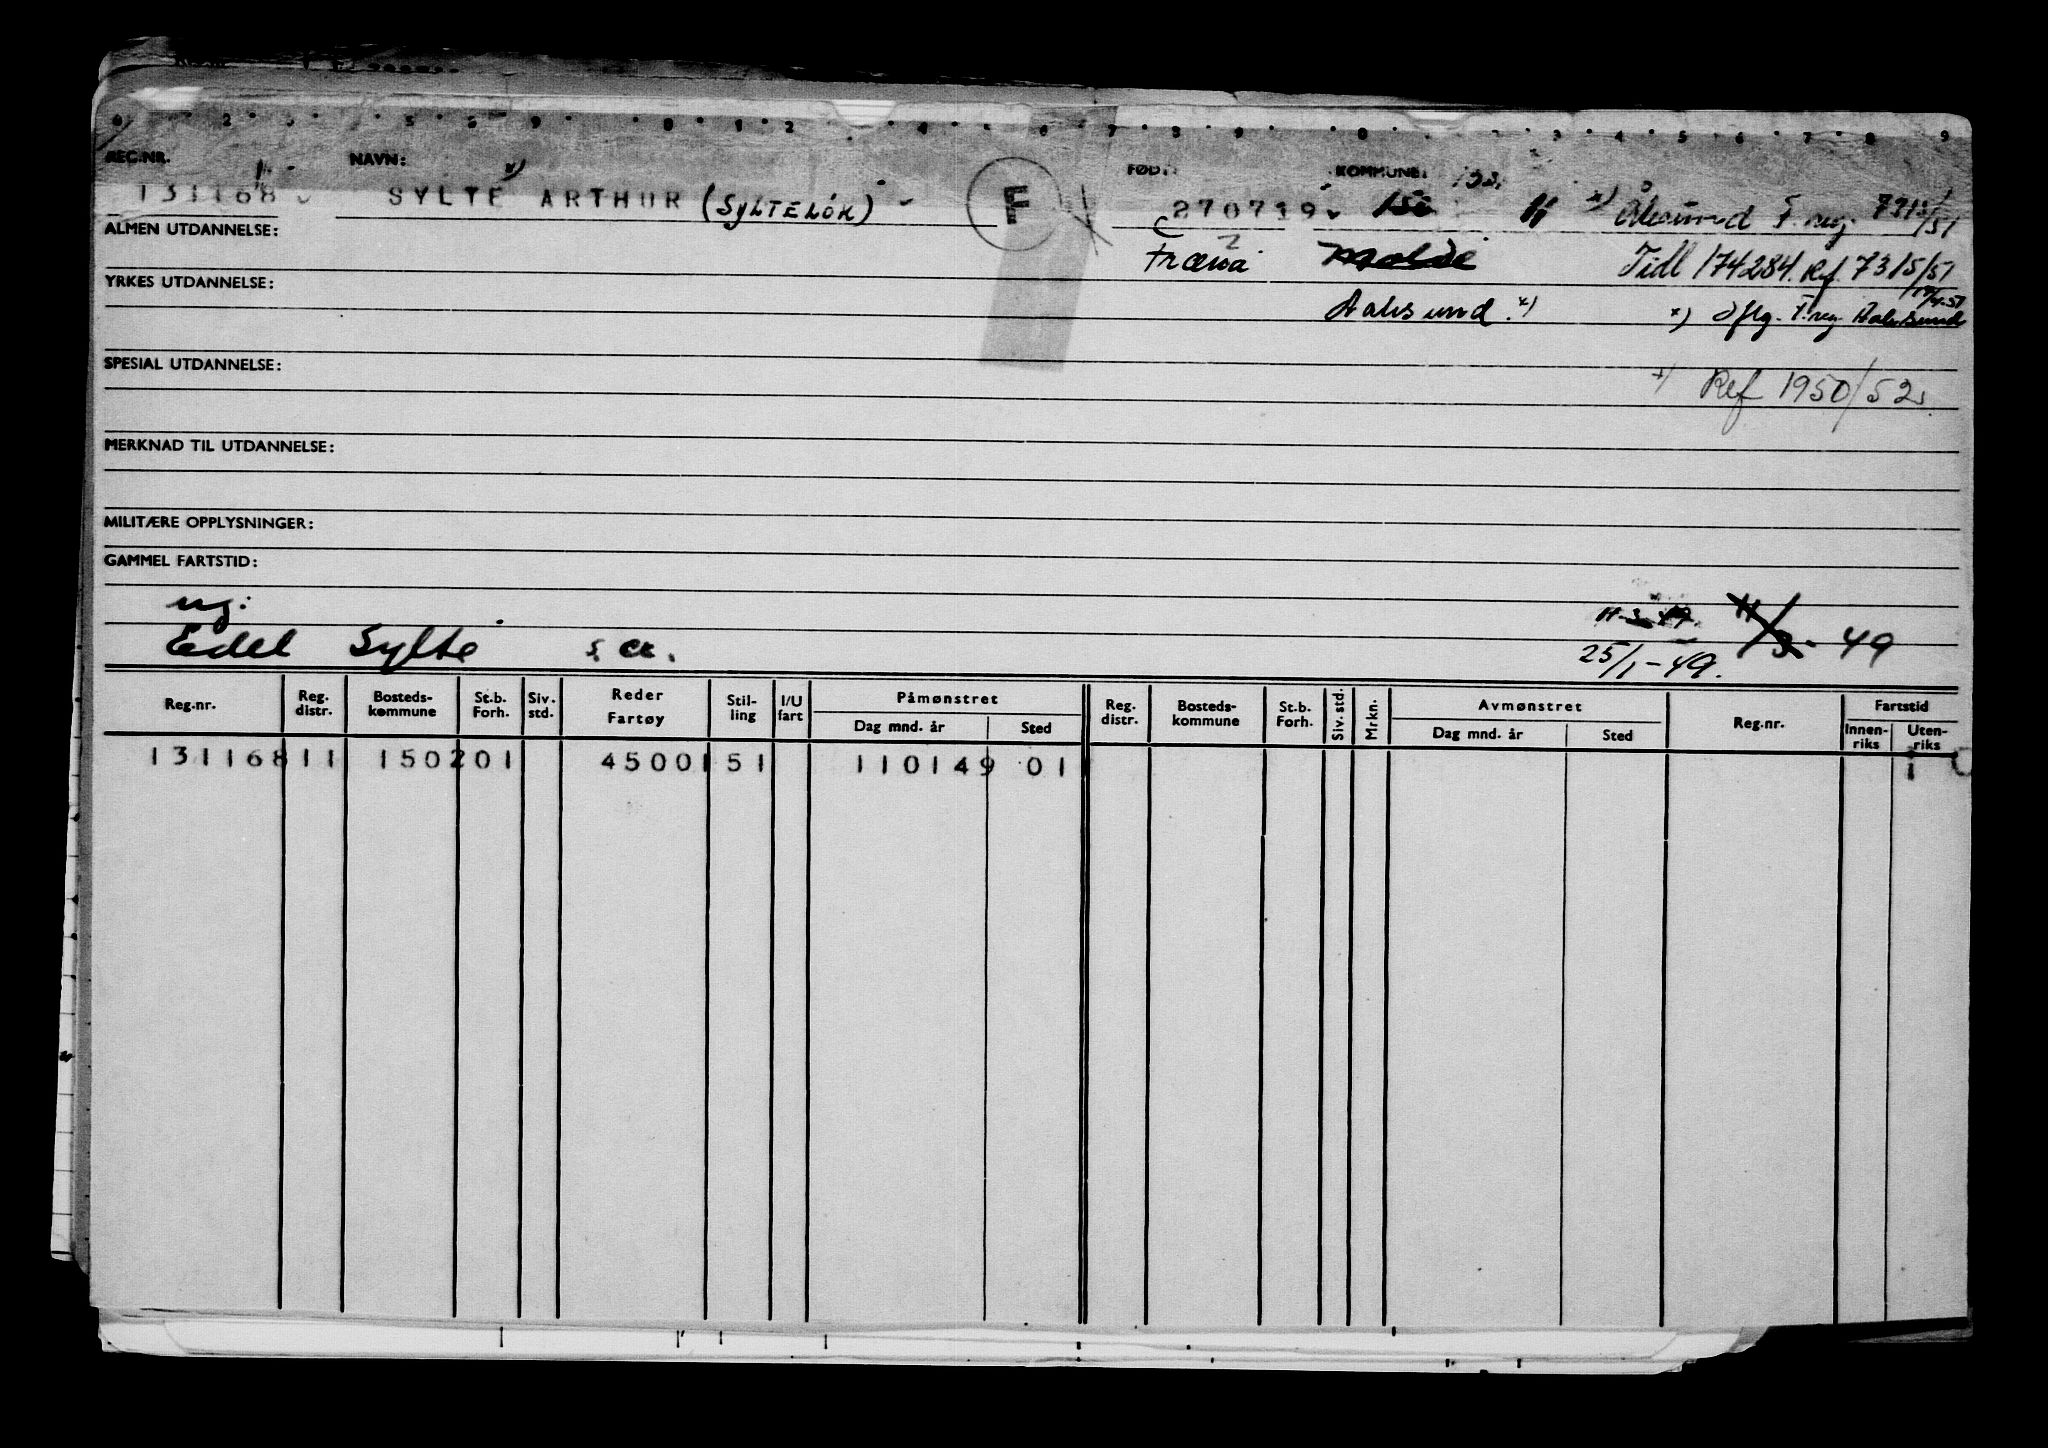 REG.NR. NAVN: FØDT: KOMMUNE:
131168 SYLTE x) ARTHUR (SYLTELØK) F 270719 11
ALMEN UTDANNELSE:
Fræna Molde Tidl 174284. Ref. 7315/51
YRKES UTDANNELSE:
Aalesund. x) x) Aalesund
SPESIAL UTDANNELSE:
Ref 1950/52.
MERKNAD TIL UTDANNELSE:
MILITÆRE OPPLYSNINGER:
GAMMEL FARTSTID:
ug:
Edel Sylte s. a. 25/1-49. 11/3-49
Reg.nr. Reg. distr. Bosteds-kommune St.b. Forh. Siv. std. Reder Fartøy Stil-ling I/U fart Påmønstret Dag mnd. år Sted Reg. distr. Bosteds-kommune St.b. Forh. Siv. std. Mrkn. Avmønstret Dag mnd. år Sted Reg.nr. Fartstid Innen-riks Uten-riks
131168 11 1502 01 45001 51 110149 01